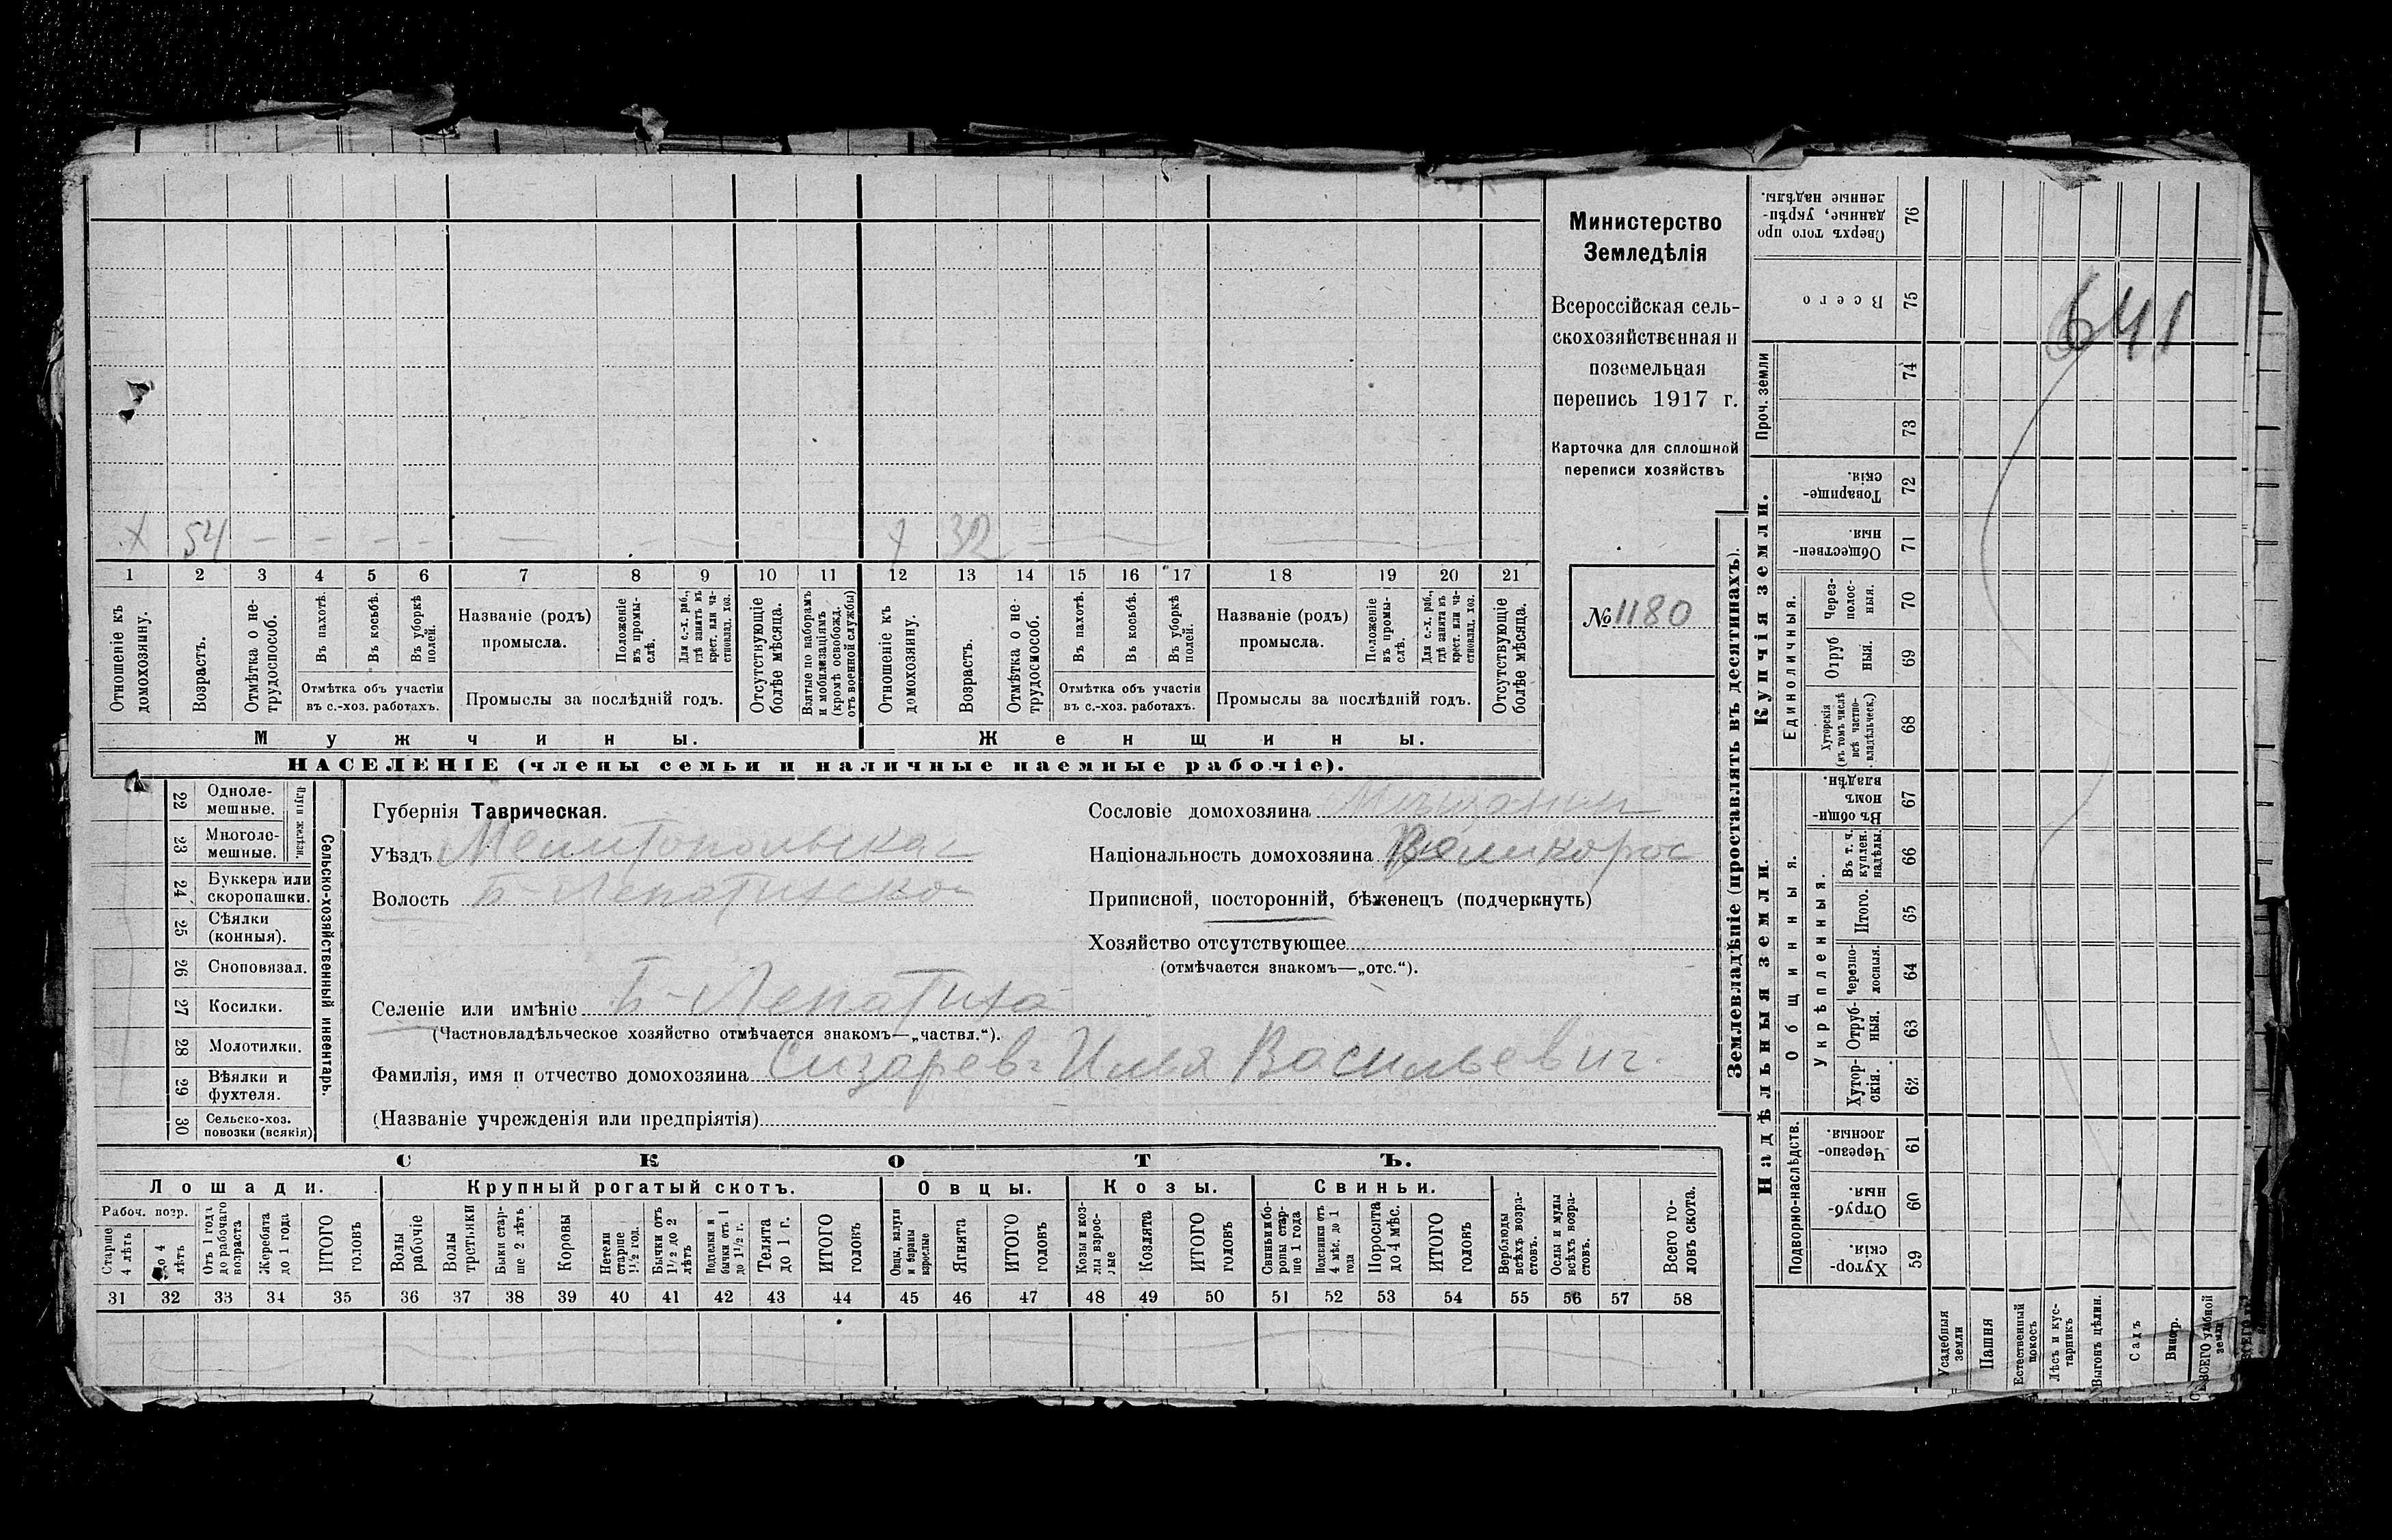 Министерство
Земледѣлія
Всероссійская сель-
скохозяйственная и
поземельная
перепись 1917 г.
Карточка для сплошной
переписи хозяйствъ
№ 1180
641
Х 54 — — — — — — —
Х 32 — — —
1 2 3 4 5 6 7 8 9 10 11 12 13 14 15 16 17 18 19 20 21
Отношеніе къ домохозяину.
Возрастъ.
Отмѣтка о не-трудоспособ.
Въ пахотѣ.
Въ косьбѣ.
Въ уборкѣ полей.
Отмѣтка объ участіи
въ с.-хоз. работахъ.
Названіе (родъ)
промысла.
Положеніе въ промы-слѣ.
Для с.-х. раб., гдѣ занятъ въ крест. или ча-стновлад. хоз.
Промыслы за послѣдній годъ.
Отсутствующіе болѣе мѣсяца.
Взятые по наборамъ и мобилизаціямъ (кромѣ освобожд. отъ военной службы)
Отношеніе къ домохозяину.
Возрастъ.
Отмѣтка о не-трудоспособ.
Въ пахотѣ.
Въ косьбѣ.
Въ уборкѣ полей.
Отмѣтка объ участіи
въ с.-хоз. работахъ.
Названіе (родъ)
промысла.
Положеніе въ промы-слѣ.
Для с.-х. раб., гдѣ занятъ въ крест. или ча-стновлад. хоз.
Промыслы за послѣдній годъ.
Отсутствующіе болѣе мѣсяца.
Мужчины.
Женщины.
НАСЕЛЕНІЕ (члены семьи и наличные наемные рабочіе).
22 Одноле-мешные.
23 Многоле-мешные.
Плуги желѣзн.
24 Буккера или скоропашки.
25 Сѣялки (конныя).
26 Сноповязал.
27 Косилки.
28 Молотилки.
29 Вѣялки и фухтеля.
30 Сельско-хоз. повозки (всякія)
Сельско-хозяйственный инвентарь.
Губернія Таврическая.
Уѣздъ Мелитопольская
Волость Б-Лепатихской
Селеніе или имѣніе Б-Лепатиха
(Частновладѣльческое хозяйство отмѣчается знакомъ—„частвл.“).
Фамилія, имя и отчество домохозяина Сизаревъ Илья Васильевич.
(Названіе учрежденія или предпріятія)
Сословіе домохозяина Мещанин
Національность домохозяина Великорос
Приписной, посторонній, бѣженецъ (подчеркнуть)
Хозяйство отсутствующее
(отмѣчается знакомъ—„отс.“).
СКОТЪ.
Лошади.
Крупный рогатый скотъ.
Овцы.
Козы.
Свиньи.
Рабоч. возр.
Старше 4 лѣтъ
До 4 лѣтъ
Отъ 1 года до рабочаго возраста
Жеребята до 1 года
ИТОГО головъ
Волы рабочіе
Волы третьяки
Быки стар-ше 2 лѣтъ
Коровы
Нетели старше 1½ год.
Бычки отъ 1½ до 2 лѣтъ
Подтелки и бычки отъ 1 до 1½ г.
Телята до 1 г.
ИТОГО головъ
Овцы, валухи и бараны взрослые
Ягнята
ИТОГО головъ
Козы и коз-лы взрос-лые
Козлята
ИТОГО головъ
Свиньи и бо-ровы стар-ше 1 года
Подсвинки отъ 4 мѣс. до 1 года
Поросята до 4 мѣс.
ИТОГО головъ
Верблюды всѣхъ возра-стовъ.
Ослы и мулы всѣхъ возра-стовъ.
Всего го-ловъ скота.
31 32 33 34 35 36 37 38 39 40 41 42 43 44 45 46 47 48 49 50 51 52 53 54 55 56 57 58
Землевладѣніе (проставлять въ десятинахъ).
Сверхъ того про-данные, укрѣп-ленные надѣлы. 76
Всего 75
Проч. земли 74 73
Купчія земли.
Товарище-скія. 72
Обществен-ныя 71
Единоличныя.
Через-полос-ныя. 70
Отруб-ныя. 69
Хуторскія (въ томъ числѣ всѣ частно-владѣльческ.) 68
Надѣльныя земли.
Общинныя.
Въ общи-номъ владѣн. 67
Укрѣпленныя.
Въ т. ч. куплен. надѣлы. 66
Итого. 65
Черезпо-лосныя. 64
Отруб-ныя. 63
Хутор-скія. 62
Подворно-наслѣдств.
Черезпо-лосныя 61
Отруб-ныя. 60
Хутор-скія. 59
Усадебныя земли
Пашня
Естественный покосъ
Лѣсъ и кус-тарникъ
Выгонъ цѣлин.
Садъ
Виногр.
ВСЕГО удобной земли